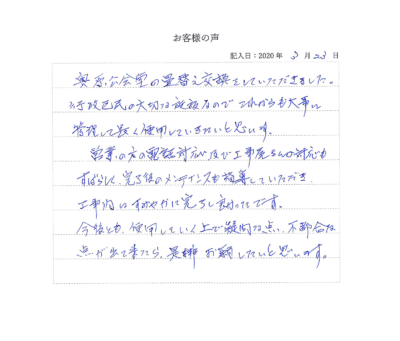 お客様の声
記入日：2020年 3月23日
公会堂の畳替え交換をしていただきました。
行政区民の大切な施設なので これからも大事に
管理して長く使用していきたいと思います。
営業の方の電話対応及び工事屋さんの対応も
すばらしく、完了後のメンテナンスも
工事内 すみやかに完了し良かったです。
今後とも、使用していく上で疑問な点、不都合な
点が出て来たら、是非 お願したいと思います。